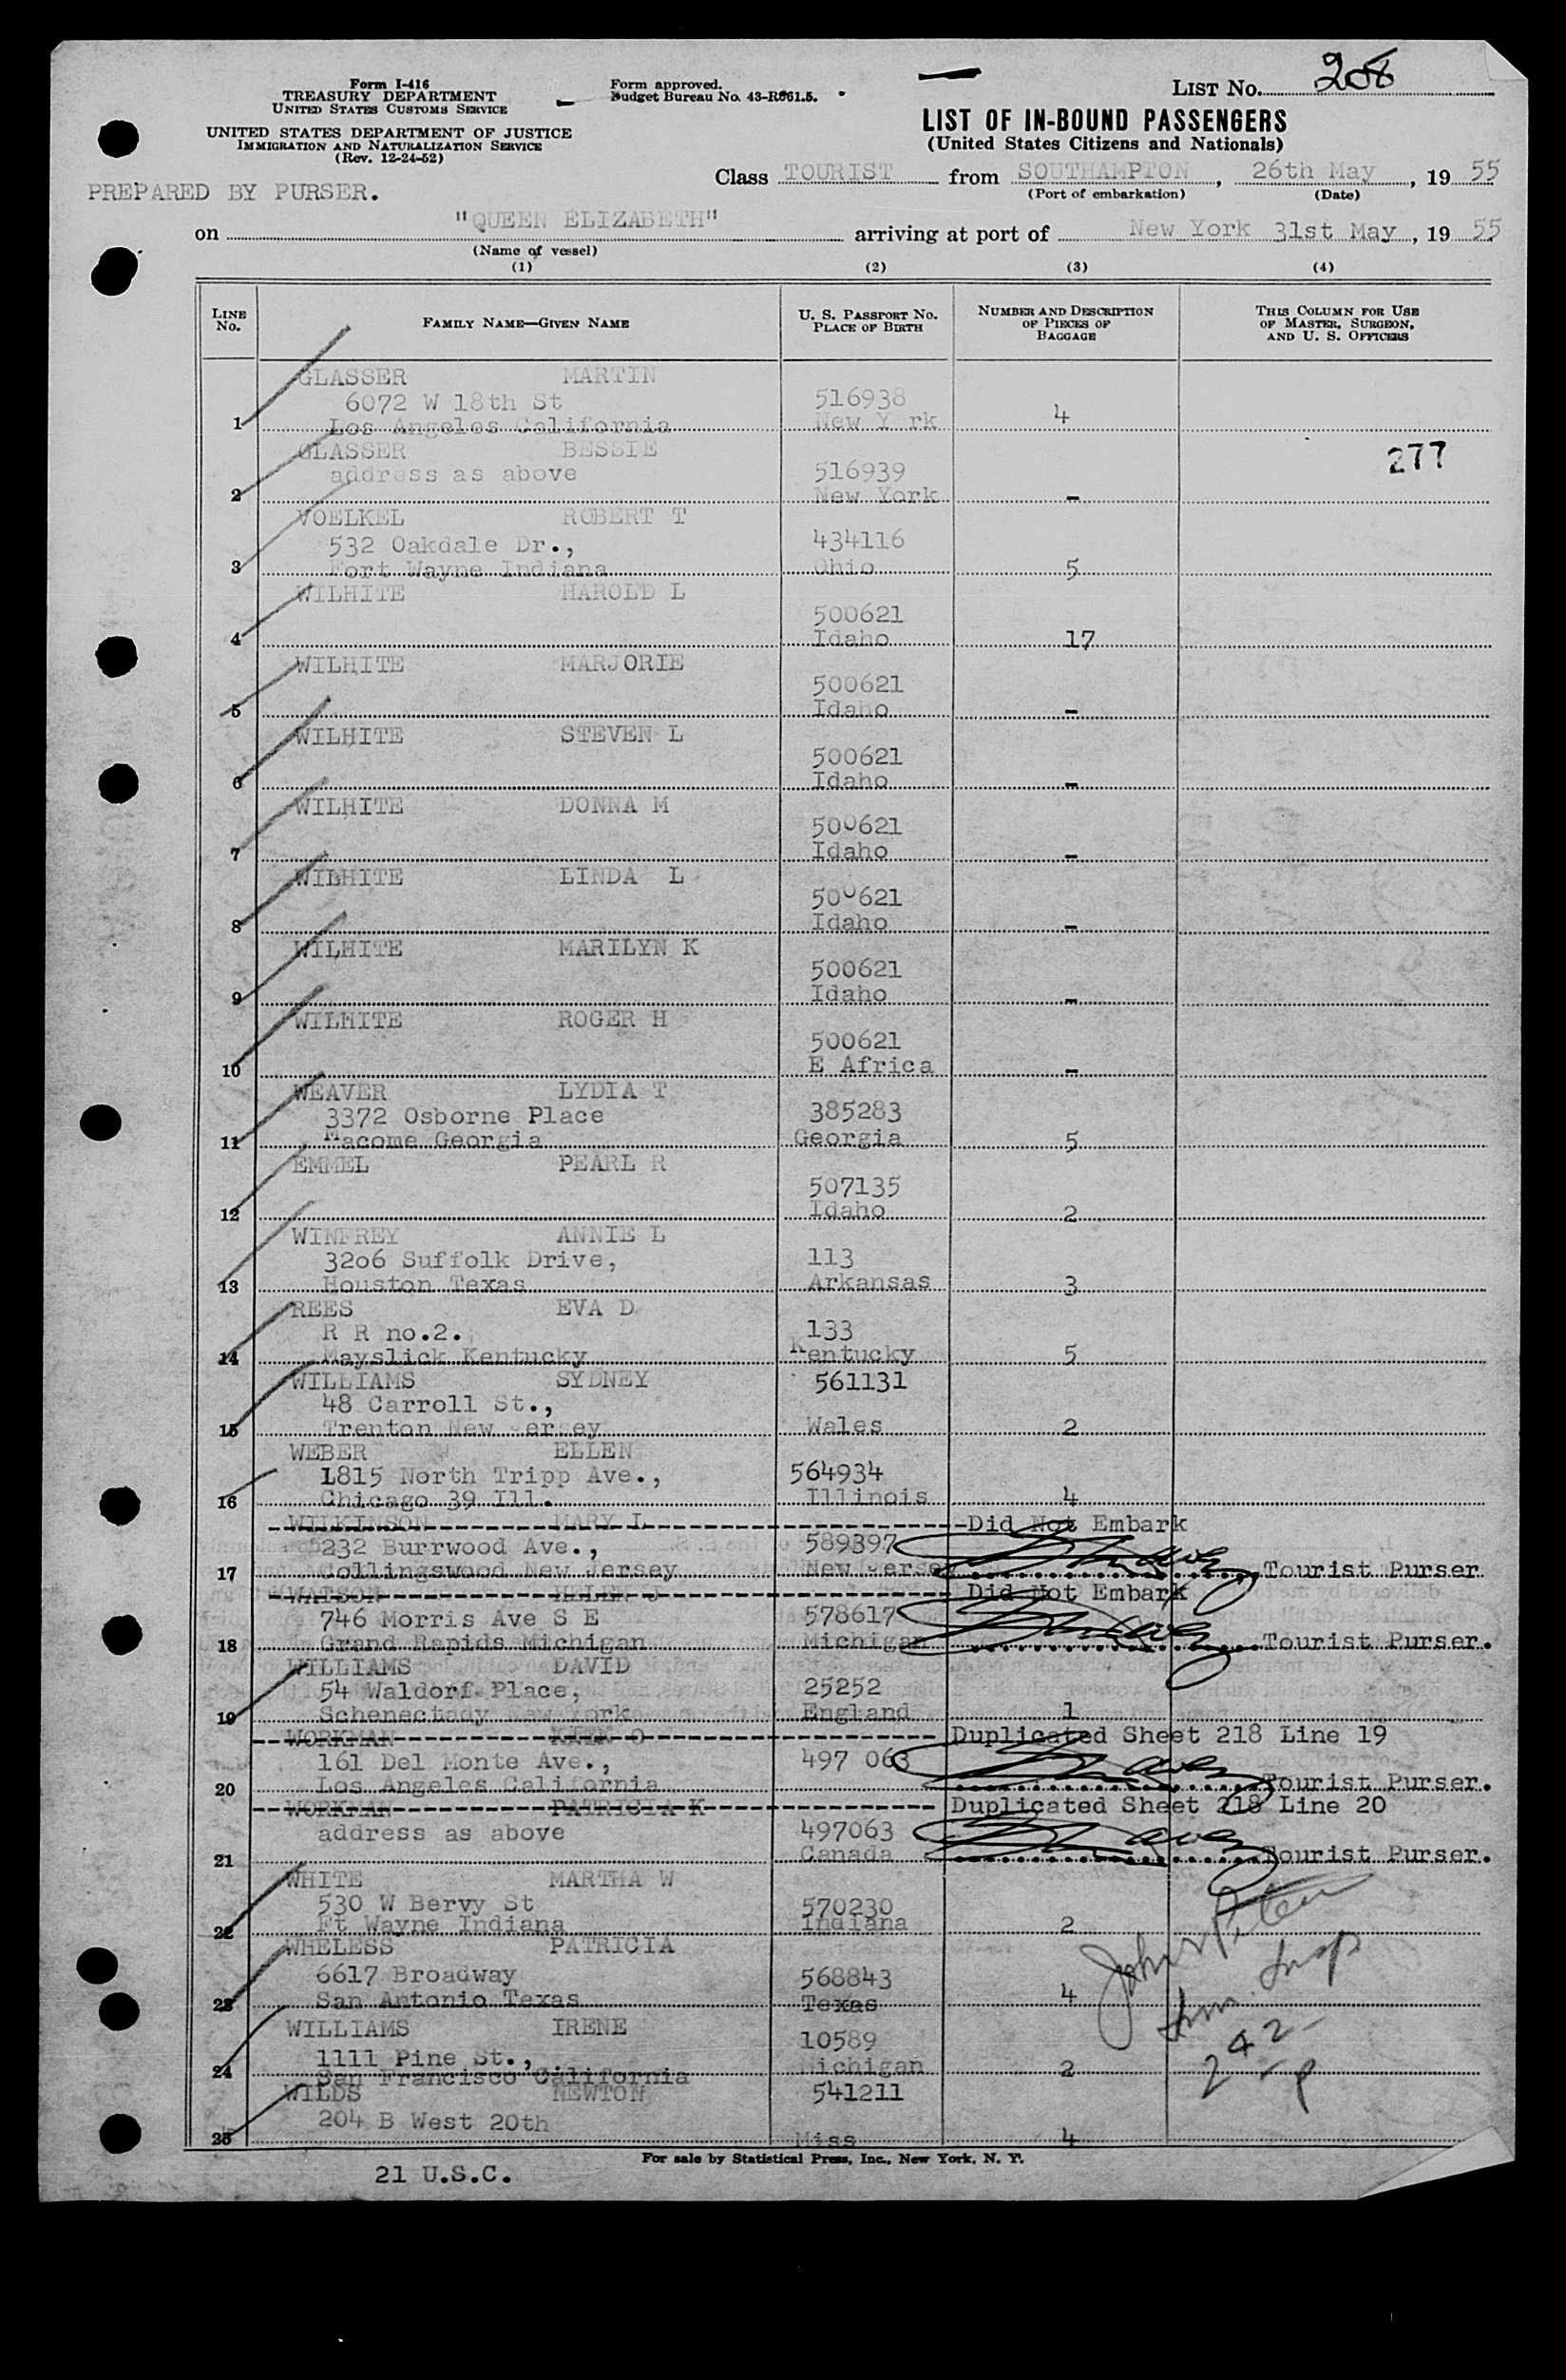 Form I-416
TREASURY DEPARTMENT
UNITED STATES CUSTOMS SERVICE
UNITED STATES DEPARTMENT OF JUSTICE
IMMIGRATION AND NATURALIZATION SERVICE
(Rev. 12-24-52)
Form approved.
Budget Bureau No. 43-R061.5.
LIST No. 208
LIST OF IN-BOUND PASSENGERS
(United States Citizens and Nationals)
PREPARED BY PURSER.
Class TOURIST from SOUTHAMPTON, 26th May, 19 55
(Port of embarkation) (Date)
on "QUEEN ELIZABETH" arriving at port of New York 31st May, 19 55
(Name of vessel)
(1) (2) (3) (4)
LINE No. FAMILY NAME—GIVEN NAME U. S. PASSPORT No. PLACE OF BIRTH NUMBER AND DESCRIPTION OF PIECES OF BAGGAGE THIS COLUMN FOR USE OF MASTER, SURGEON, AND U. S. OFFICERS
GLASSER MARTIN
6072 W 18th St 516938
1 Los Angeles California New Y rk 4
GLASSER BESSIE 277
address as above 516939
2 New York -
VOELKEL ROBERT T
532 Oakdale Dr., 434116
3 Fort Wayne Indiana Ohio 5
WILHITE HAROLD L
500621
4 Idaho 17
WILHITE MARJORIE
500621
5 Idaho -
WILHITE STEVEN L
500621
6 Idaho -
WILHITE DONNA M
500621
7 Idaho -
WILHITE LINDA L
500621
8 Idaho -
WILHITE MARILYN K
500621
9 Idaho -
WILHITE ROGER H
500621
10 E Africa -
WEAVER LYDIA T
3372 Osborne Place 385283
11 Macome Georgia Georgia 5
EMMEL PEARL R
507135
12 Idaho 2
WINFREY ANNIE L
3206 Suffolk Drive, 113
13 Houston Texas Arkansas 3
REES EVA D
R R no.2. 133
14 Mayslick Kentucky Kentucky 5
WILLIAMS SYDNEY 561131
48 Carroll St.,
15 Trenton New Jersey Wales 2
WEBER ELLEN
1815 North Tripp Ave., 564934
16 Chicago 39 Ill. Illinois 4
WILKINSON MARY L Did Not Embark
232 Burrwood Ave., 589397
17 Collingswood New Jersey New Jersey Tourist Purser
WATSON HELEN J Did Not Embark
746 Morris Ave S E 578617
18 Grand Rapids Michigan Michigan Tourist Purser.
WILLIAMS DAVID
54 Waldorf Place, 25252
19 Schenectady New York England 1
WORKMAN O Duplicated Sheet 218 Line 19
161 Del Monte Ave., 497 063
20 Los Angeles California Tourist Purser.
WORKMAN PATRICIA K Duplicated Sheet 218 Line 20
address as above 497063
21 Canada Tourist Purser.
WHITE MARTHA W
530 W Bervy St 570230
22 Ft Wayne Indiana Indiana 2
WHELESS PATRICIA
6617 Broadway 568843
23 San Antonio Texas Texas 4
WILLIAMS IRENE 10589
1111 Pine St.,
24 San Francisco California Michigan 2
WILDS NEWTON 541211
204 B West 20th
25 Miss 4
John
Imm. Insp
242
For sale by Statistical Press, Inc., New York, N. Y.
21 U.S.C.